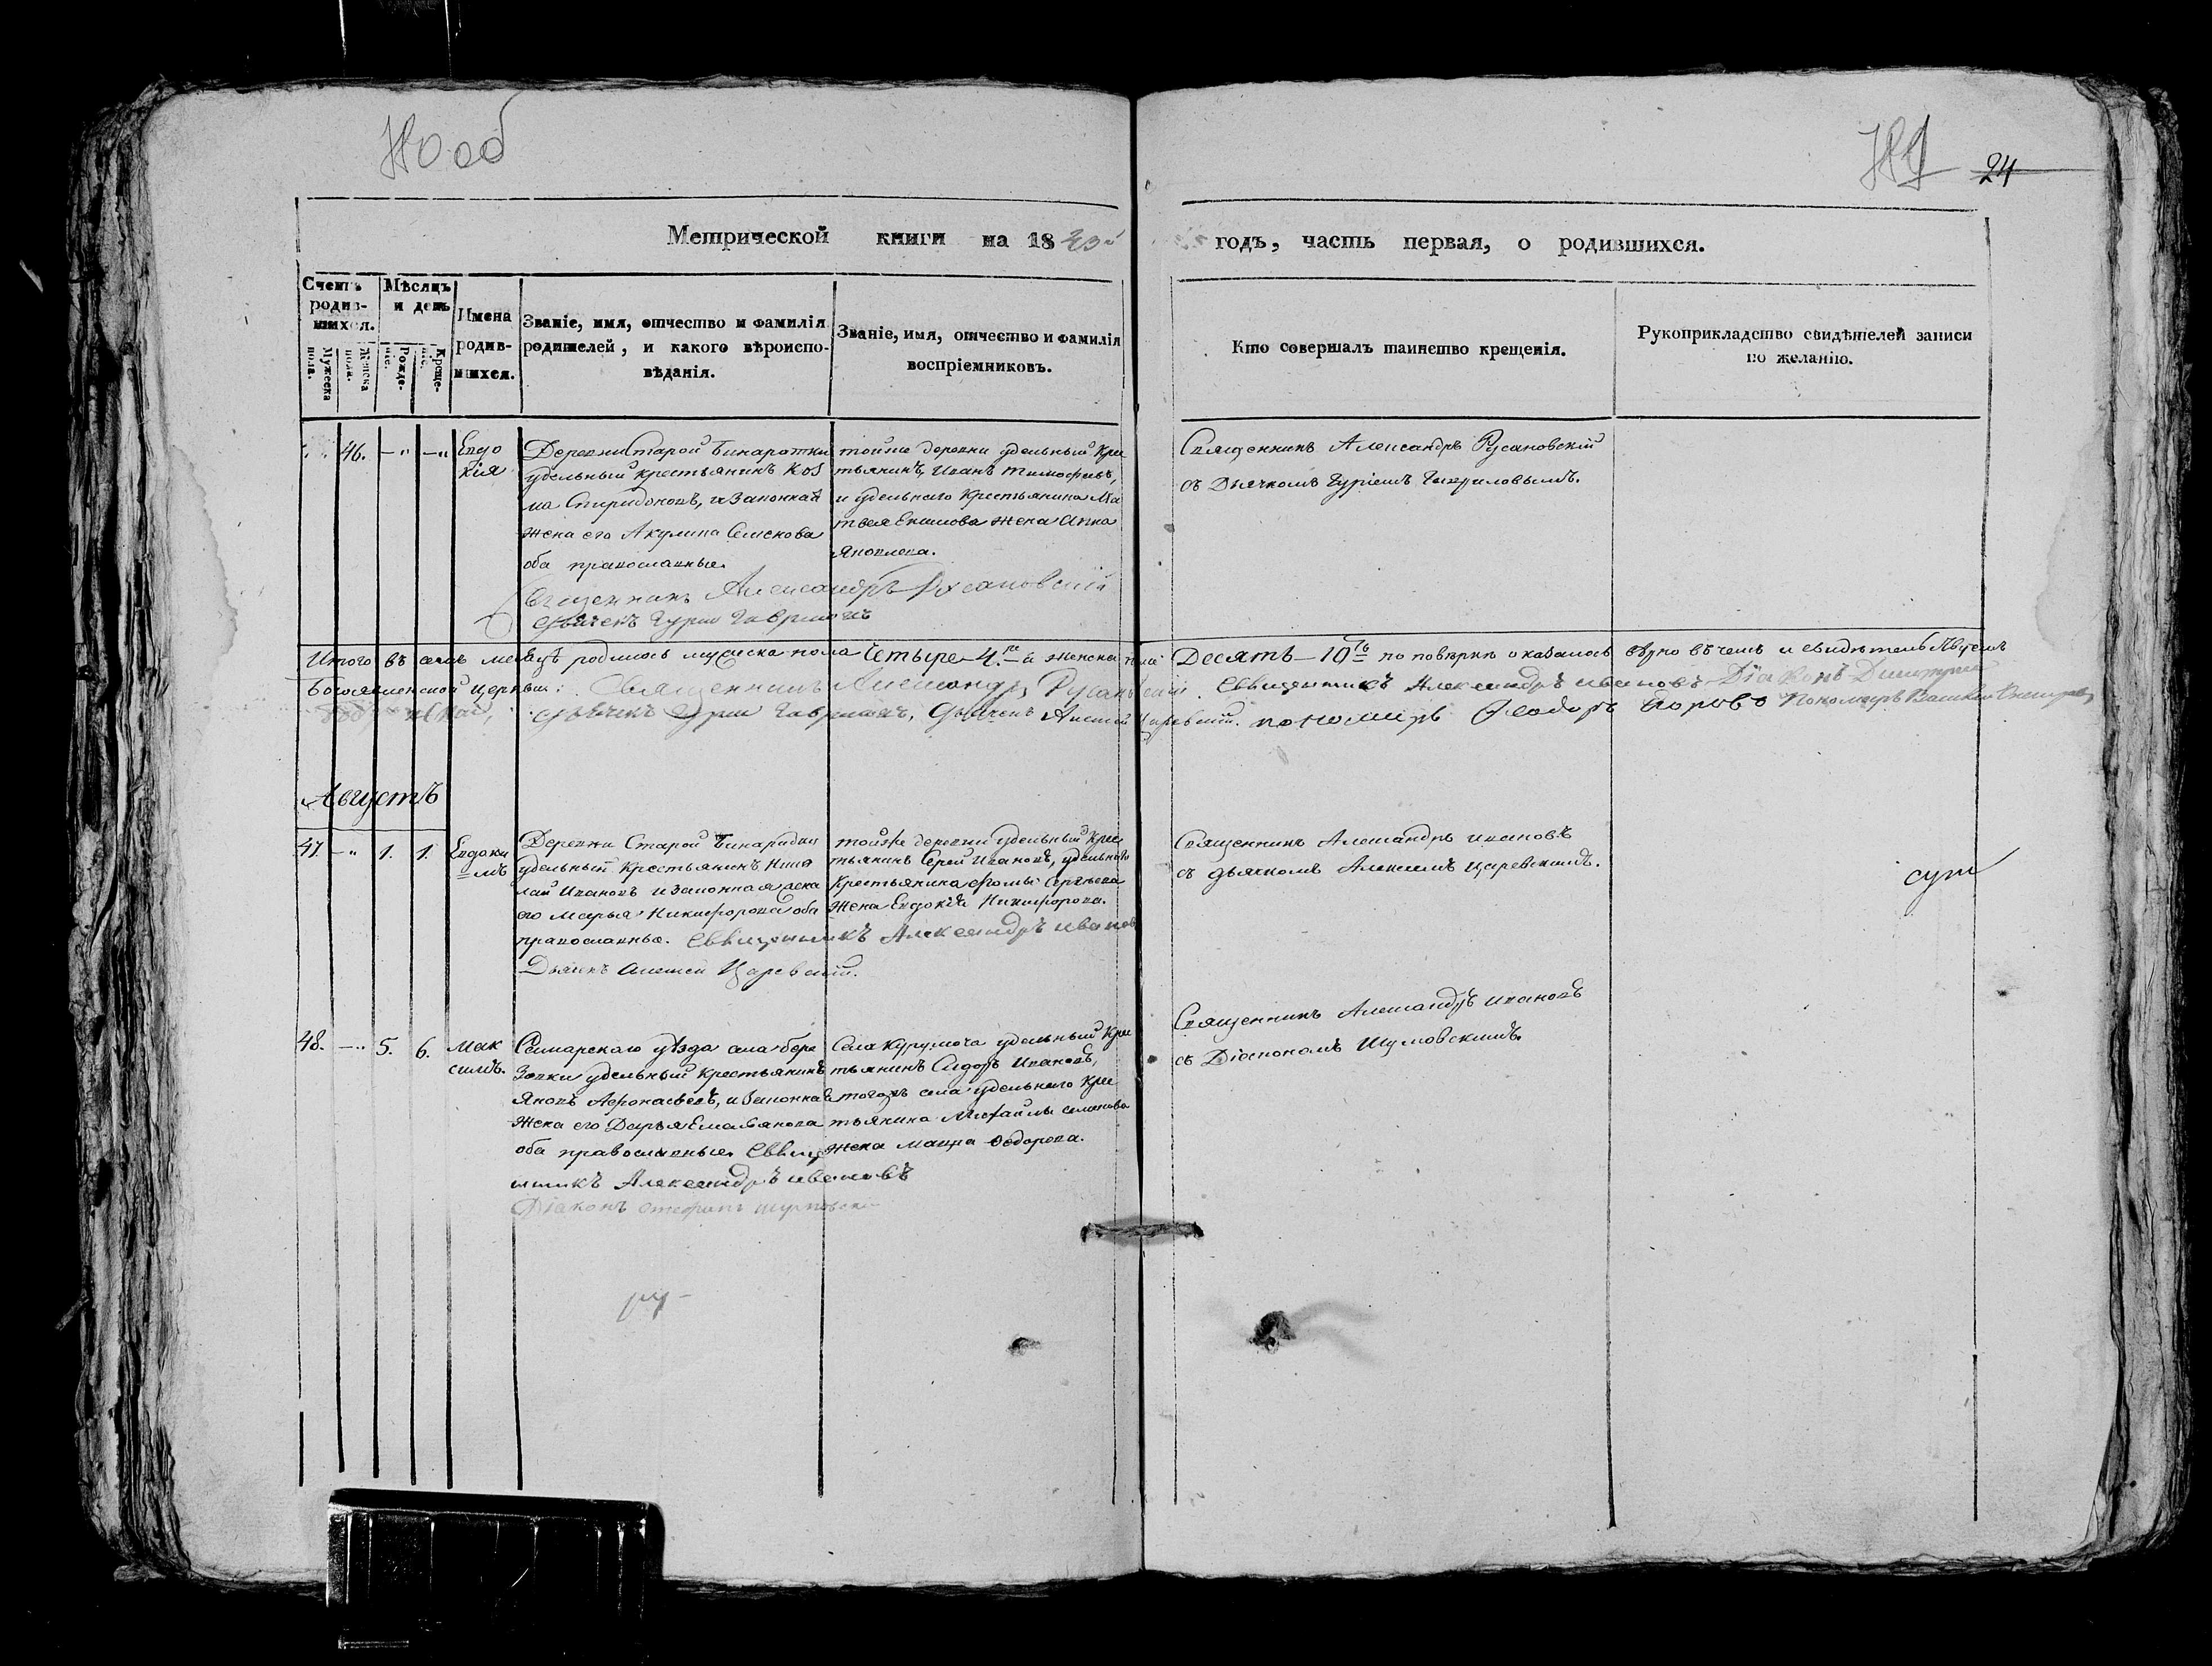 24
Метрической книги на 1843й годъ, часть первая, о родившихся.
Счетъ родив-шихся.
Мужеска пола.
Женска пола.
Мѣсяцъ и день
Рожде-нія.
Креще-нія.
Имена родив-шихся.
Званіе, имя, отчество и фамилія
родителей, и какого вѣроиспо-
вѣданія.
Званіе, имя, отчество и фамилія
воспріемниковъ.
Кто совершалъ таинство крещенія.
Рукоприкладство свидѣтелей записи
по желанію.
46.
Евдо
кія
Деревни Старой Бинаратки
удельный крестьянинъ Коз
ма Спиридоновъ, и законная
жена его Акулина Семенова
оба православные.
Священникъ Александръ Русановский
Дьячекъ Гурий Гавриловъ
тойже деревни удельный Кре
тьянинъ, Иванъ Тимофеевъ,
и удельнаго крестьянина Ма
твея Екимова жена Анна
Яковлева.
Священникъ Александръ Русановскій
съ Дьячкомъ Гуріемъ Гавриловымъ.
Итого въ семъ месяцѣ родилось мужеска пола четыре 4. и женска пола Десять 10 по поверке оказалось верно въ чемъ и свидетельствуемъ
Богоявленской церкви: Священникъ Александръ Русановский. Священникъ Александръ Ивановъ Діаконъ Димитрий
Дьячекъ Гурий Гавриловъ, Дьячекъ Алексей Царевский. пономарь Феодоръ Пономарь
Августъ
47. 1. 1.
Евдоки
мъ
Деревни Старой Бинаридки
удельный Крестьянинъ Нико
лай Ивановъ и законная жена
его Марья Никифорова оба
православные. Священникъ Александръ Ивановъ
Дьячекъ Алексей Царевский.
тойже деревни удельный Кре
тьянинъ Сергей Ивановъ, удельнаго
Крестьянина Фомы Сергеева
Жена Евдокія Никифорова.
Священникъ Александръ Ивановъ
съ дьячкомъ Алексеемъ Царевскимъ.
48. 5. 6.
Мак
симъ.
Самарскаго уѣзда села Бере
зовки удельный крестьянинъ
Яковъ Афонасьевъ, и законная
жена его Дарья Емельянова
оба православные. Священ
никъ Александръ Ивановъ
Діаконъ Стефанъ Шумовский
Села Курумоча удельный Кре
тьянинъ Сидоръ Ивановъ,
тогожъ села удельнаго Кре
тьянина Михайлы Семенова
жена Мавра Федорова.
Священникъ Александръ Ивановъ
съ Діакономъ Шумовскимъ.